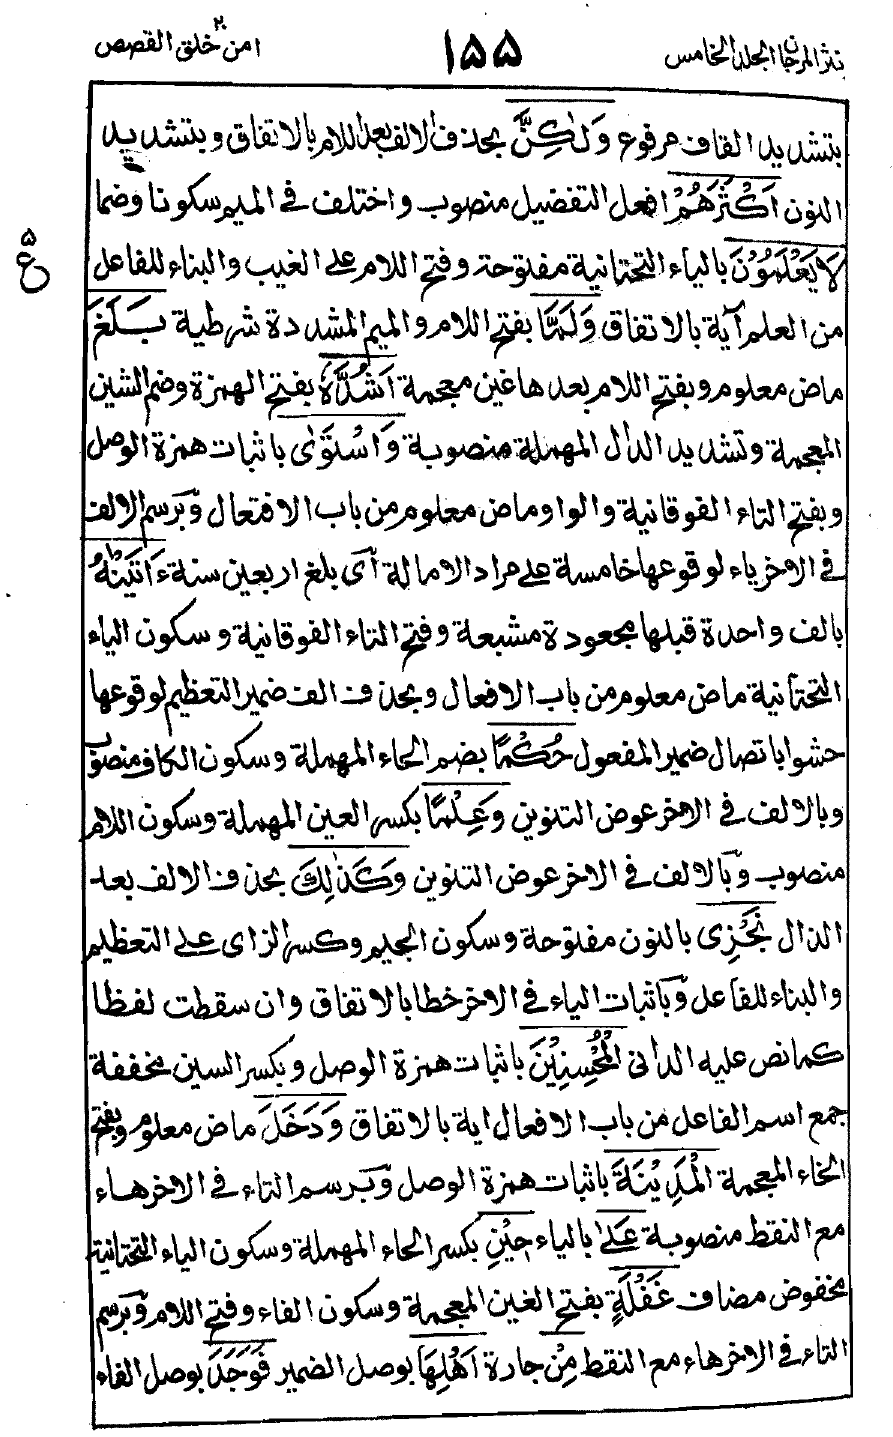 نثر المرجان المجلد الخامس
١٥٥
امن خلق ٢٠ القصص
بتشديد القاف مرفوع وَلٰكِنَّ بحذف الالف بعد اللام بالاتفاق وبتشديد
النون اَكْثَرَهُمْ افعل التفضيل منصوب واختلف في الميم سكونا وضما
لَا يَعْلَمُوْنَ بالياء التحتانية مفتوحة وفتح اللام على الغيب والبناء للفاعل
من العلم آية بالاتفاق وَلَمَّا بفتح اللام والميم المشددة شرطية بَلَغَ
ماض معلوم وبفتح اللام بعدها غين معجمة اَشُدَّهٗ بفتح الهمزة وضم الشين
المعجمة وتشديد الدال المهملة منصوبة وَاسْتَوٰى باثبات همزة الوصل
وبفتح التاء الفوقانية والواو ماض معلوم من باب الافتعال وبرسم الالف
في الاخر ياء لوقوعها خامسة على مراد الامالة اى بلغ اربعين سنة ءَاتَيْنٰهُ
بالف واحدة قبلها مجعودة مشبعة وفتح التاء الفوقانية وسكون الياء
التحتانية ماض معلوم من باب الافعال وبحذف الف ضمير التعظيم لوقوعها
حشوا باتصال ضمير المفعول حُكْمًا بضم الحاء المهملة وسكون الكاف منصوب
وبالالف في الاخر عوض التنوين وَعِلْمًا بكسر العين المهملة وسكون اللام
منصوب وبالالف في الاخر عوض التنوين وَكَذٰلِكَ بحذف الالف بعد
الذال نَجْزِى بالنون مفتوحة وسكون الجيم وكسر الزاى على التعظيم
والبناء للفاعل وباثبات الياء في الاخر خطا بالاتفاق وان سقطت لفظا
كما نص عليه الدانى الْمُحْسِنِيْنَ باثبات همزة الوصل وبكسر السين مخففة
جمع اسم الفاعل من باب الافعال اية بالاتفاق وَدَخَلَ ماض معلوم وبفتح
الخاء المعجمة الْمَدِيْنَةَ باثبات همزة الوصل وبرسم التاء في الاخر هاء
مع النقط منصوبة عَلٰى بالياء حِيْنِ بكسر الحاء المهملة وسكون الياء التحتانية
مخفوض مضاف غَفْلَةٍ بفتح الغين المعجمة وسكون الفاء وفتح اللام وبرسم
التاء في الاخر هاء مع النقط مِنْ جارة اَهْلِهَا بوصل الضمير فَوَجَدَ بوصل الفاء
ع ۵